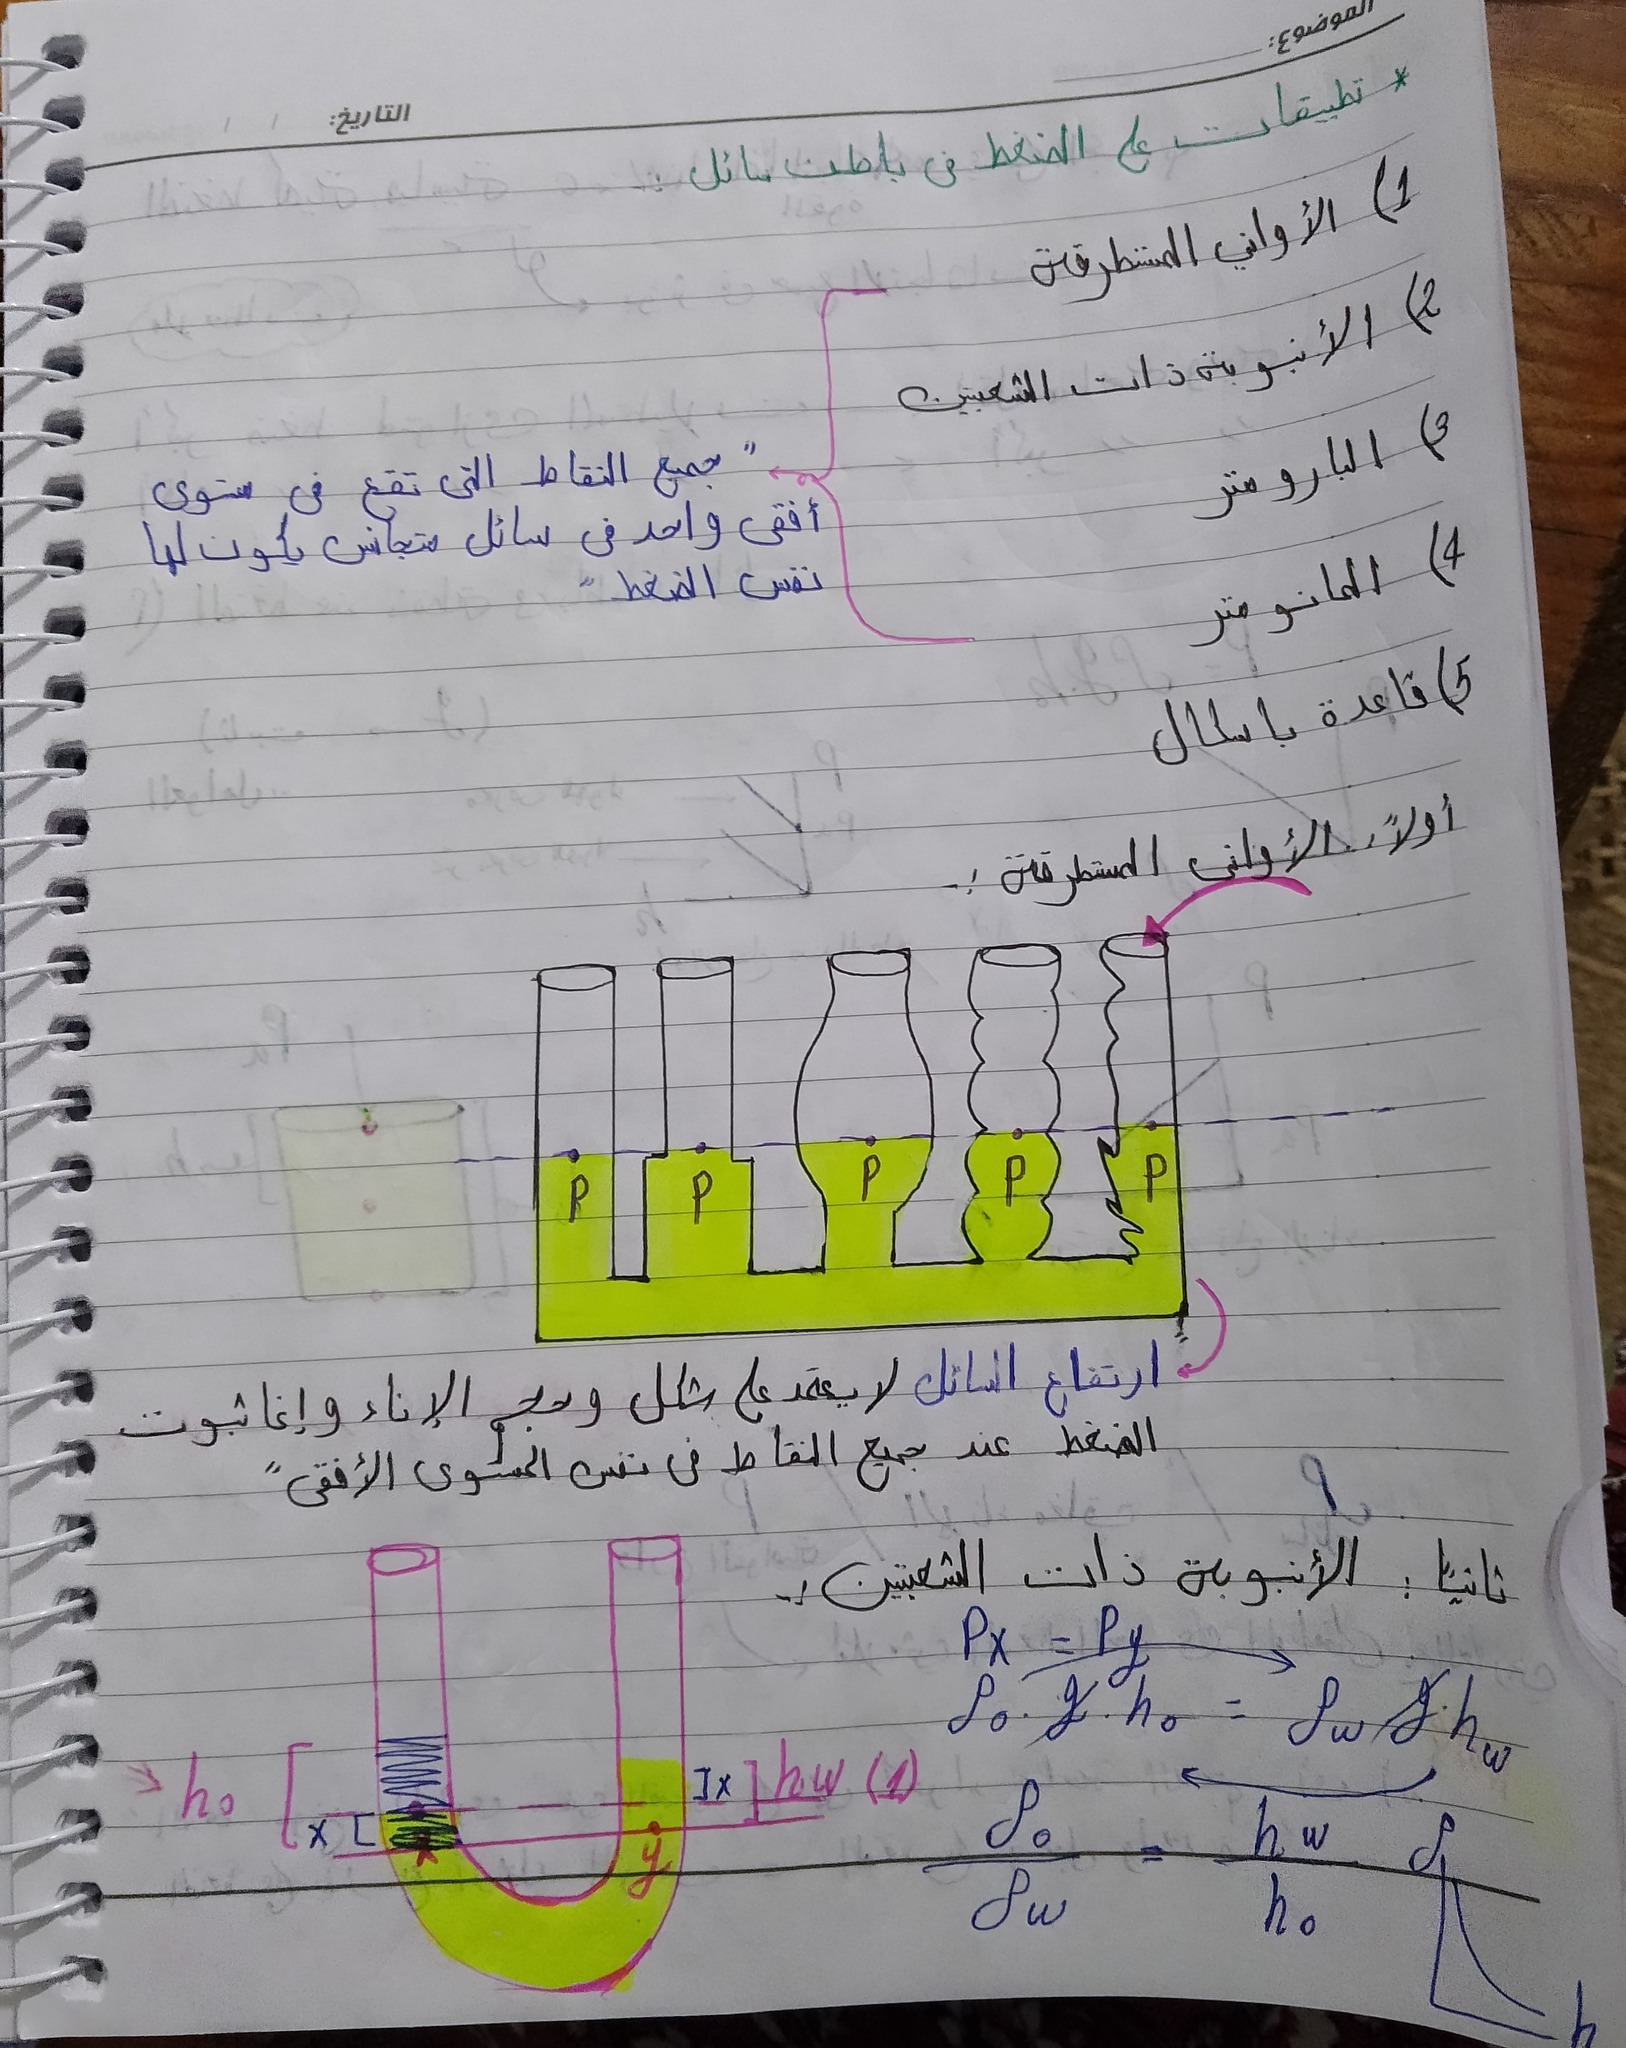 الموضوع:
التاريخ: / /
* تطبيقات على الضغط في باطن سائل :-
1) الأواني المستطرقة
2) الأنبوبة ذات الشعبتين
3) البارومتر
4) المانومتر
5) قاعدة باسكال
" جميع النقاط التى تقع فى مستوى
أفقى واحد فى سائل متجانس يكون لها
نفس الضغط "
أولاً: الأوانى المستطرقة :-
P P P P P
ارتفاع السائل لا يعتمد على شكل وحجم الإناء وإنما ثبوت
الضغط عند جميع النقاط فى نفس المستوى الأفقى "
ثانيًا : الأنبوبة ذات الشعبتين :-
Px = Py
ρo . g . ho = ρw g . hw
ρo / ρw = hw / ho
ho
x
x
y
x
hw (1)
ρ
h